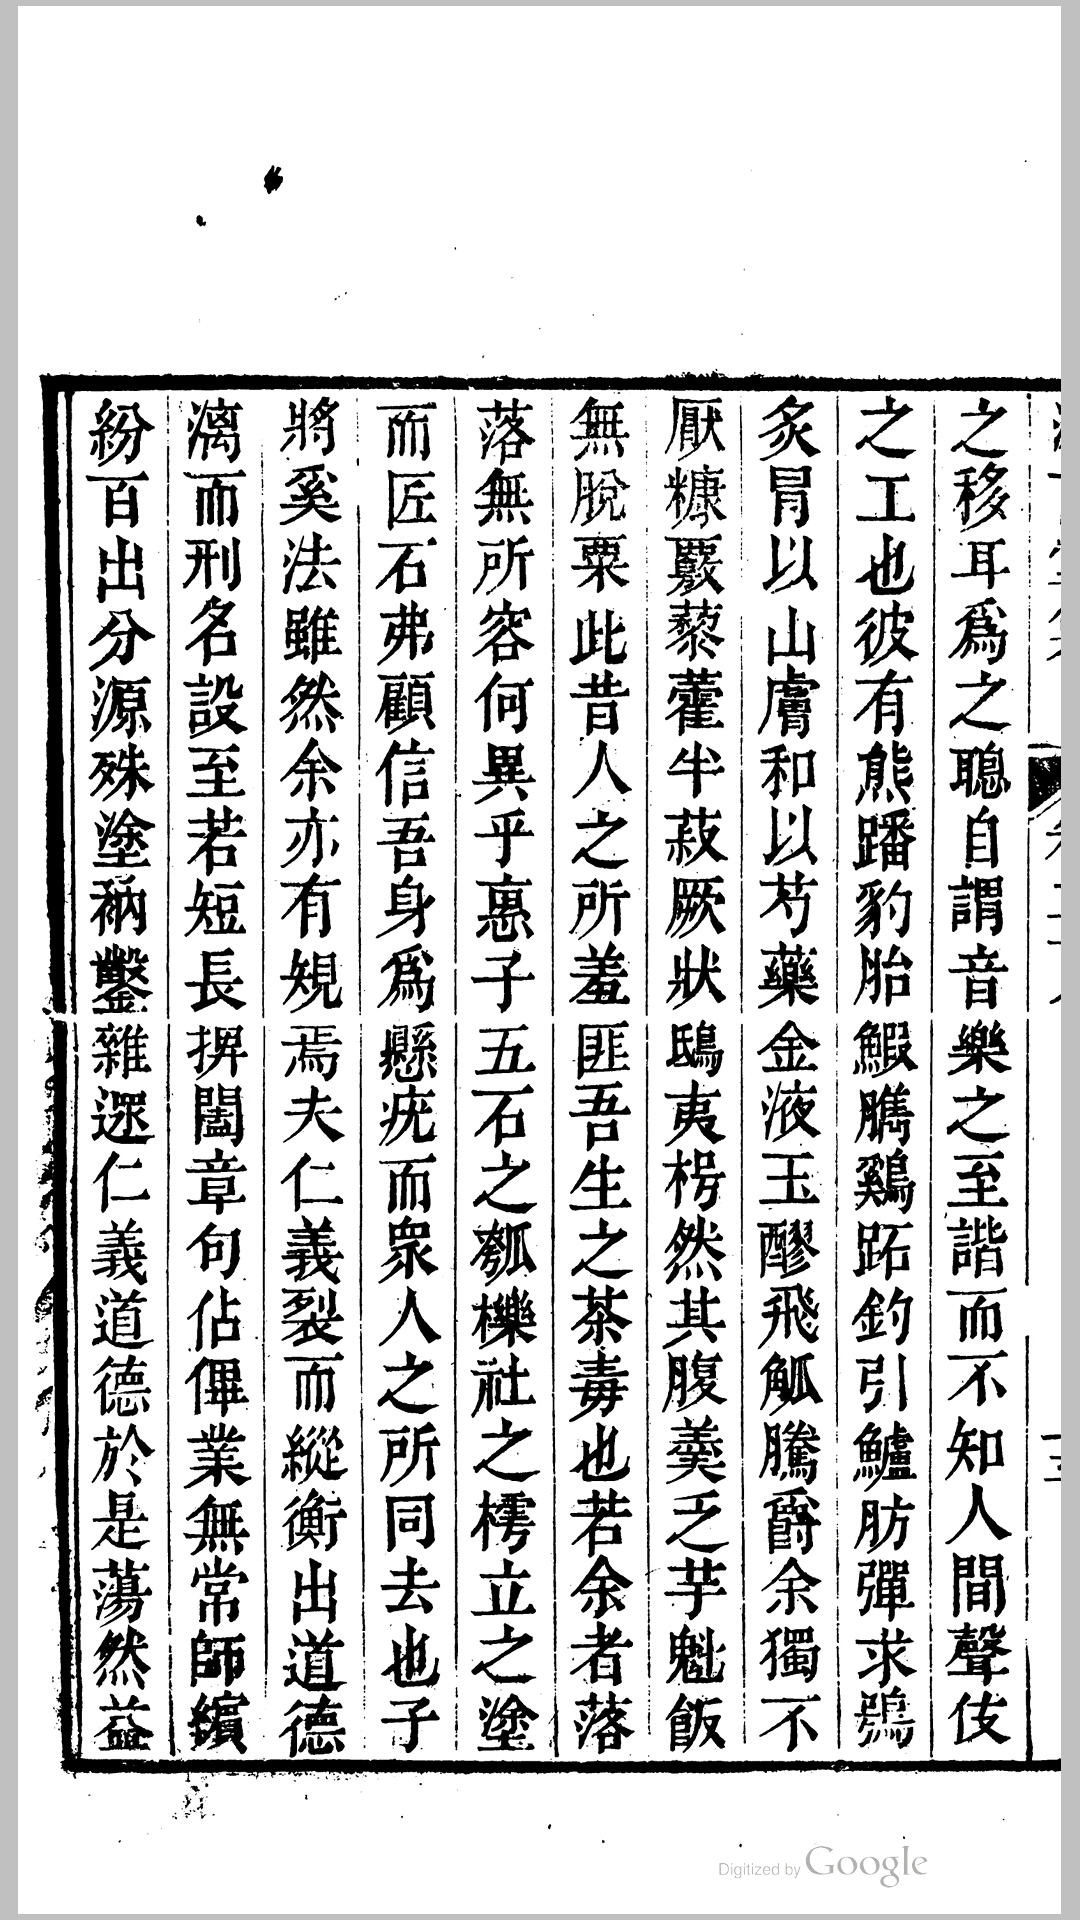 之移耳爲之聰自謂音樂之至諧而不知人間聲伎
之工也彼有熊蹯豹胎鰕臇鷄跖釣引鱸肪彈求鴞
炙冐以山膚和以芍藥金液玉醪飛觚騰爵余獨不
厭糠覈藜藿半菽厥狀鴟夷枵然其腹羹乏芋魁飯
無脫粟此昔人之所羞匪吾生之荼毒也若余者落
落無所容何異乎惠子五石之瓠櫟社之樗立之塗
而匠石弗顧信吾身爲懸疣而衆人之所同去也子
將奚法雖然余亦有規焉夫仁義裂而縱衡出道德
漓而刑名設至若短長捭闔章句佔僤業無常師繽
紛百出分源殊塗枘鑿雜遝仁義道德於是蕩然益
Digitized by Google